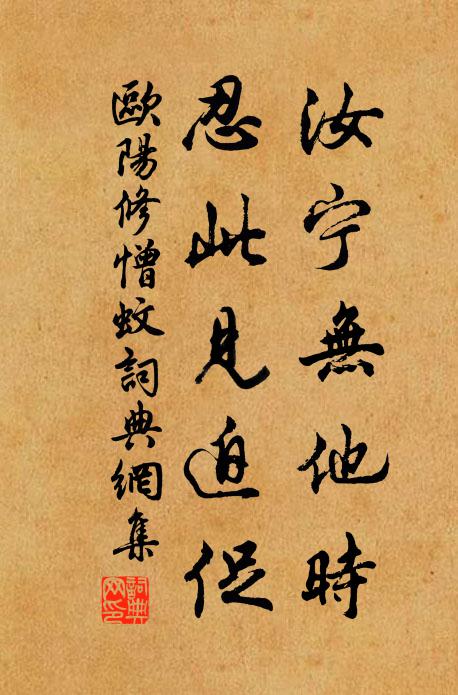 汝宁無他時
忍此見迫促
歐陽修憎蚊詞典網集
詞典网印